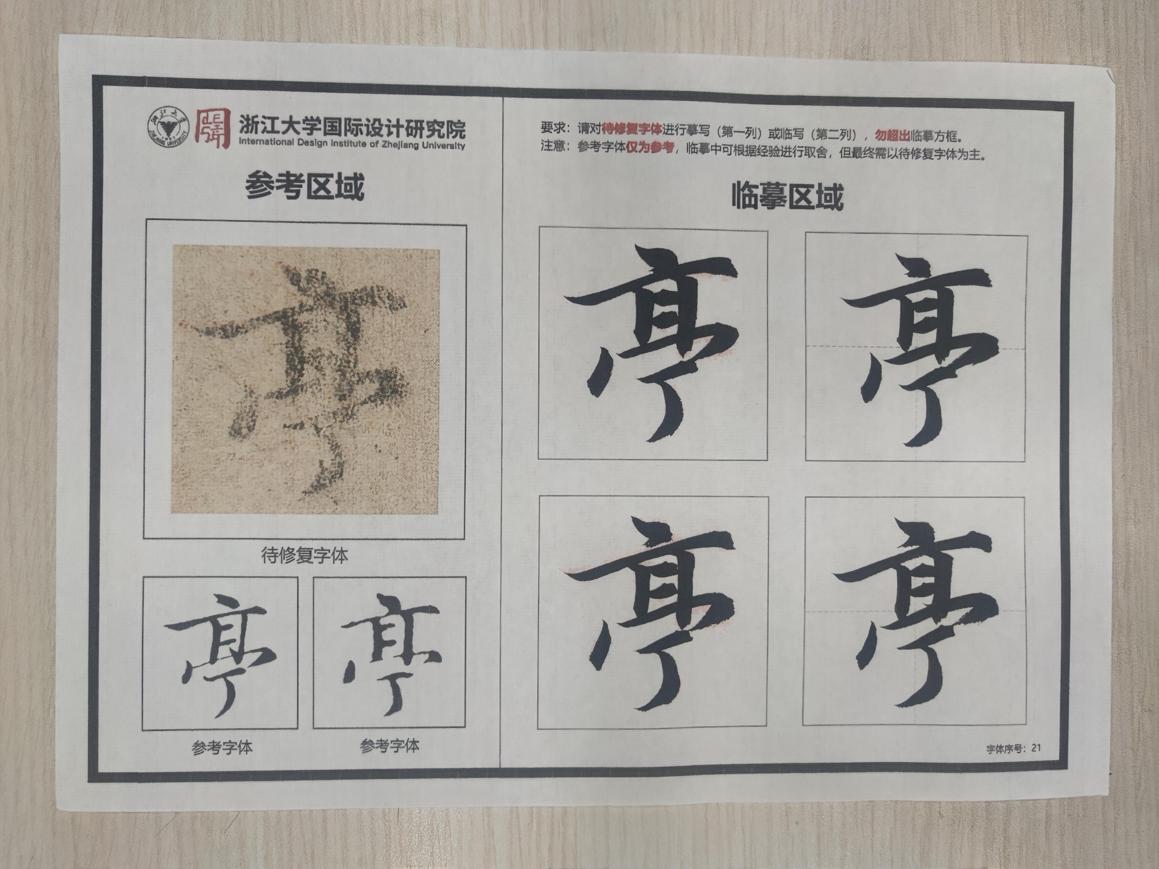 浙江大学国际设计研究院
International Design Institute of Zhejiang University
参考区域
亭
待修复字体
亭
参考字体
亭
参考字体
要求：请对待修复字体进行摹写（第一列）或临写（第二列），勿超出临摹方框。
注意：参考字体仅为参考，临摹中可根据经验进行取舍，但最终需以待修复字体为主。
临摹区域
亭 亭
亭 亭
字体序号：21